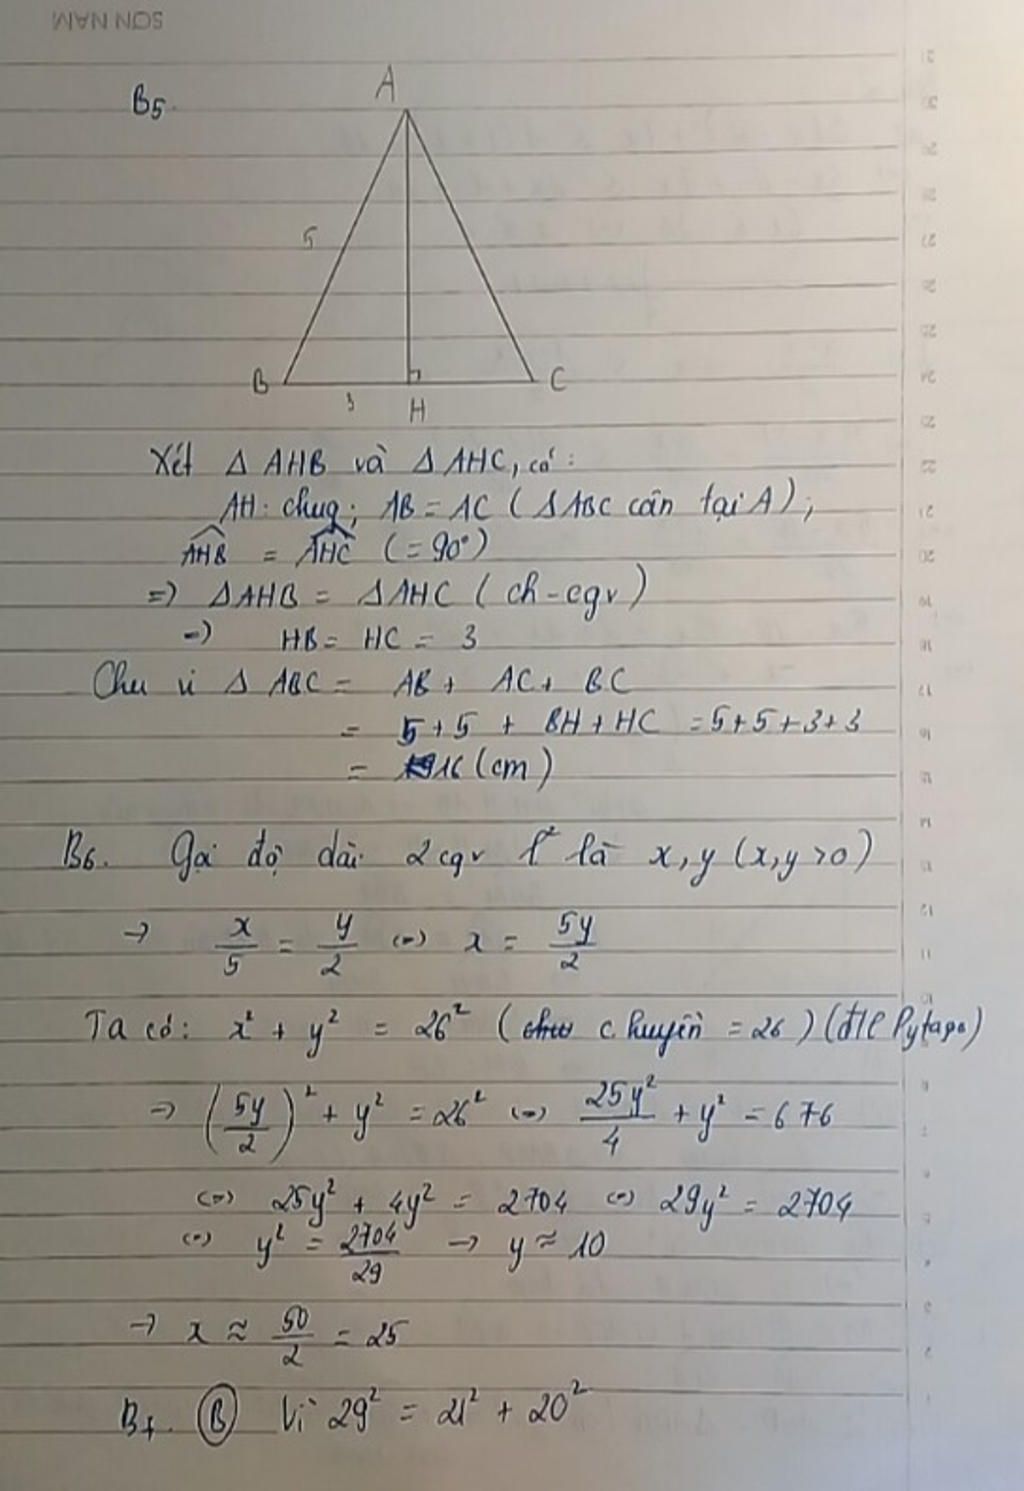 SƠN NAM
B5.
A
5
B
3
H
C
Xét Δ AHB và Δ AHC, có:
AH: chug; AB = AC (ΔABC cân tại A);
AHB = AHC (= 90°)
=> ΔAHB = ΔAHC (ch - cgv)
=> HB = HC = 3
Chu vi Δ ABC = AB + AC + BC
= 5 + 5 + BH + HC = 5 + 5 + 3 + 3
= 16 (cm)
B6. Gọi độ dài 2 cgv l² là x, y (x, y > 0)
→ x/5 = y/2 <=> x = 5y/2
Ta có: x² + y² = 26² (c. huyền = 26) (đ/l Pytago)
=> (5y/2)² + y² = 26² <=> 25y²/4 + y² = 676
<=> 25y² + 4y² = 2704 <=> 29y² = 2704
<=> y² = 2704/29 → y ≈ 10
→ x ≈ 50/2 = 25
B7. B Vì 29² = 21² + 20²